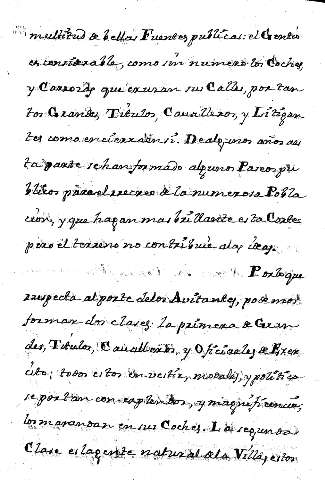 multitud de bellas Fuentes publicas: el Gentio
es considerable, como sin numero los Coches,
y Carrozas que cruzan sus Calles, por tan
tos Grandes, Titulos, Cavalleros, y Litigan
tes como encierra en sí. De algunos años a es
ta parte se han formado algunos Paseos pu
blicos para el recreo de la numerosa Pobla
cion, y que hagan mas brillante esta Corte
pero el terreno no contribuie a las ideas.
Por lo que
respecta al porte de los Avitantes, podemos
formar dos clases: la primera de Gran
des, Titulos, Cavalleros, y Oficiales de Exer
cito; todos estos en vestir, modales, y politica
se portan con esplendor, y magnificencia,
los mas andan en sus Coches. La segunda
Clase es la gente natural de la Villa, estos